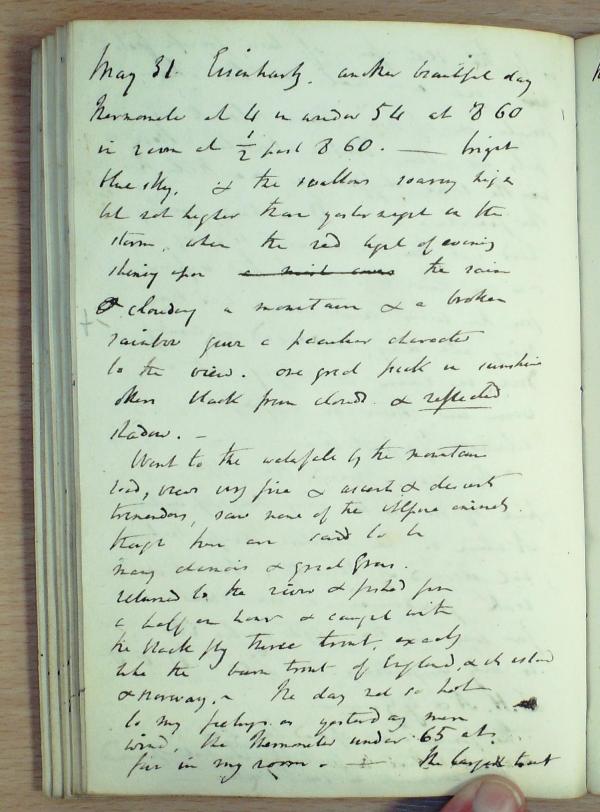 May 31. Eisenhartz. another beautiful day
Thermometer at 4 in window 54 at 8 60
in room at ½ past 8 60. — bright
blue sky, & the swallows soaring high
but not higher than yesternight in the
storm, when the red light of evening
shining upon the rain
& clouds a mountain & a broken
rainbow gave a peculiar character
to the view. one great peak in sunshine
others black from clouds & reflected
shadow. –
Went to the waterfall by the mountain
road, views very fine & ascents & descents
tremendous, saw none of the Alpine animals
though here are said to be
many chamois & great Grous.
returned to the river & fished for
a half an hour & caught with
the black fly three trout, exactly
like the burn trout of England, &
& Norway. The day not so hot
to my feelings as yesterday more
wind, the Thermometer under 65 at
five in my room. — The largest trout